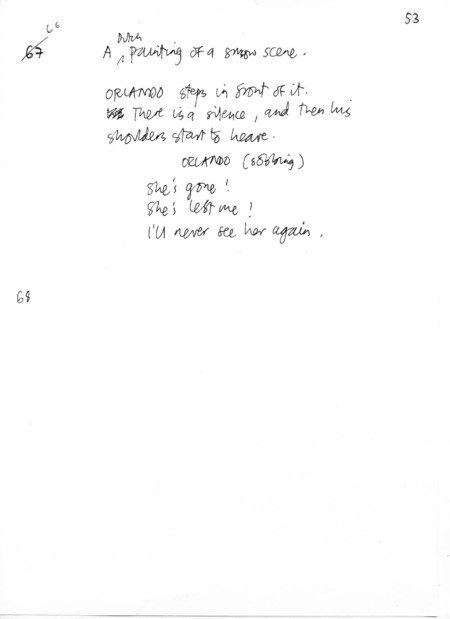 53
66
67 A Dutch painting of a snow scene.
ORLANDO steps in front of it.
There is a silence, and then his
shoulders start to heave.
ORLANDO (sobbing)
She's gone!
She's left me!
I'll never see her again.
68